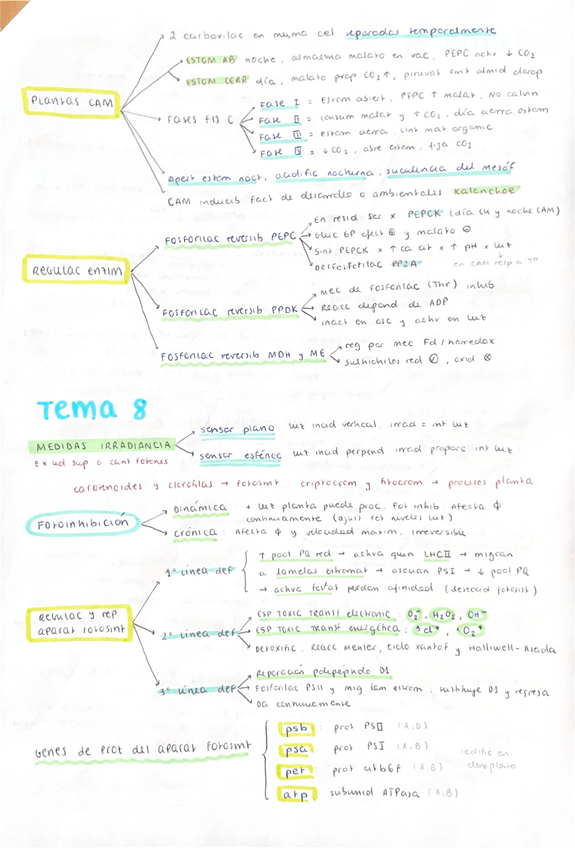 2 carboxilac en misma cel separadas temporalmente
ESTOM AB noche, almasma malato en vac, PEPC activ ↓ CO2
ESTOM CERR día, malato prop CO2 ↑, piruvat sint almid clorop
PLANTAS CAM
FASES FIJ C
Fase I = Estom abiert, PEPC ↑ malat, No calvin
Fase II = consum malat y ↑ CO2, día cierra estom
Fase III = estom cierra, sint mat organic
Fase IV = ↓ CO2, abre estom, fija CO2
Apert estom noct, acidific nocturna, suculencia del mesóf
CAM inducib fact de desarrollo o ambientales Kalanchoe
FOSFORILAC REVERSIB PEPC
En resid ser x PEPCK (día C4 y noche CAM)
Gluc 6P efect ⊕ y malato ⊖
Sint PEPCK x ↑ ca cit x ↑ pH x luz
Desfosforilac PP2A
en CAM resp a Tº
REGULAC ENZIM
FOSFORILAC REVERSIB PPDK
Mec de fosforilac (Thr) inhib
Reacc depend de ADP
Inact en osc y activ en luz
FOSFORILAC REVERSIB MDH y ME
reg por mec Fd/tiorredox
sulfhidrilos red ✓, oxid ⊗
Tema 8
MEDIDAS IRRADIANCIA
Ex ud sup o cant fotones
sensor plano luz incid vertical. irrad = int luz
sensor esférico luz incid perpend. irrad proporc int luz
carotenoides y clorofilas → fotosint criptocrom y fitocrom → procesos planta
Fotoinhibición
Dinámica + luz planta puede proc. Fot inhib. Afecta ϕ
continuamente (ajust fot niveles luz)
Crónica: Afecta ϕ y velocidad maxim. Irreversible
REGULAC y REP
APARAT FOTOSINT
1ª línea def
↑ pool PQ red → activa quin LHCII → migran
a lamelas estromat → asocian PSI → ↓ pool PQ
→ activa fosfat pierdan afinidad (desacord fotosist)
2ª línea def
ESP TOXIC TRANSF electrónic: O2⁻, H2O2, OH⁻
ESP TOXIC TRANSF energética: ³Cl*, ¹O2*
Detoxific. Reacc Mehler, ciclo xantof y Halliwell-Asada
3ª línea def
Reparación polipéptido D1
Fosforilac PSII y mig lam estrom, sustituye D1 y regresa
Da continuamente
Genes de prot del aparat fotosint
psb: prot PSII (A,D)
psa: prot PSI (A,B)
pet: prot citb6f (A,B)
atp subunid ATPasa (A,B)
codific en
cloroplasto